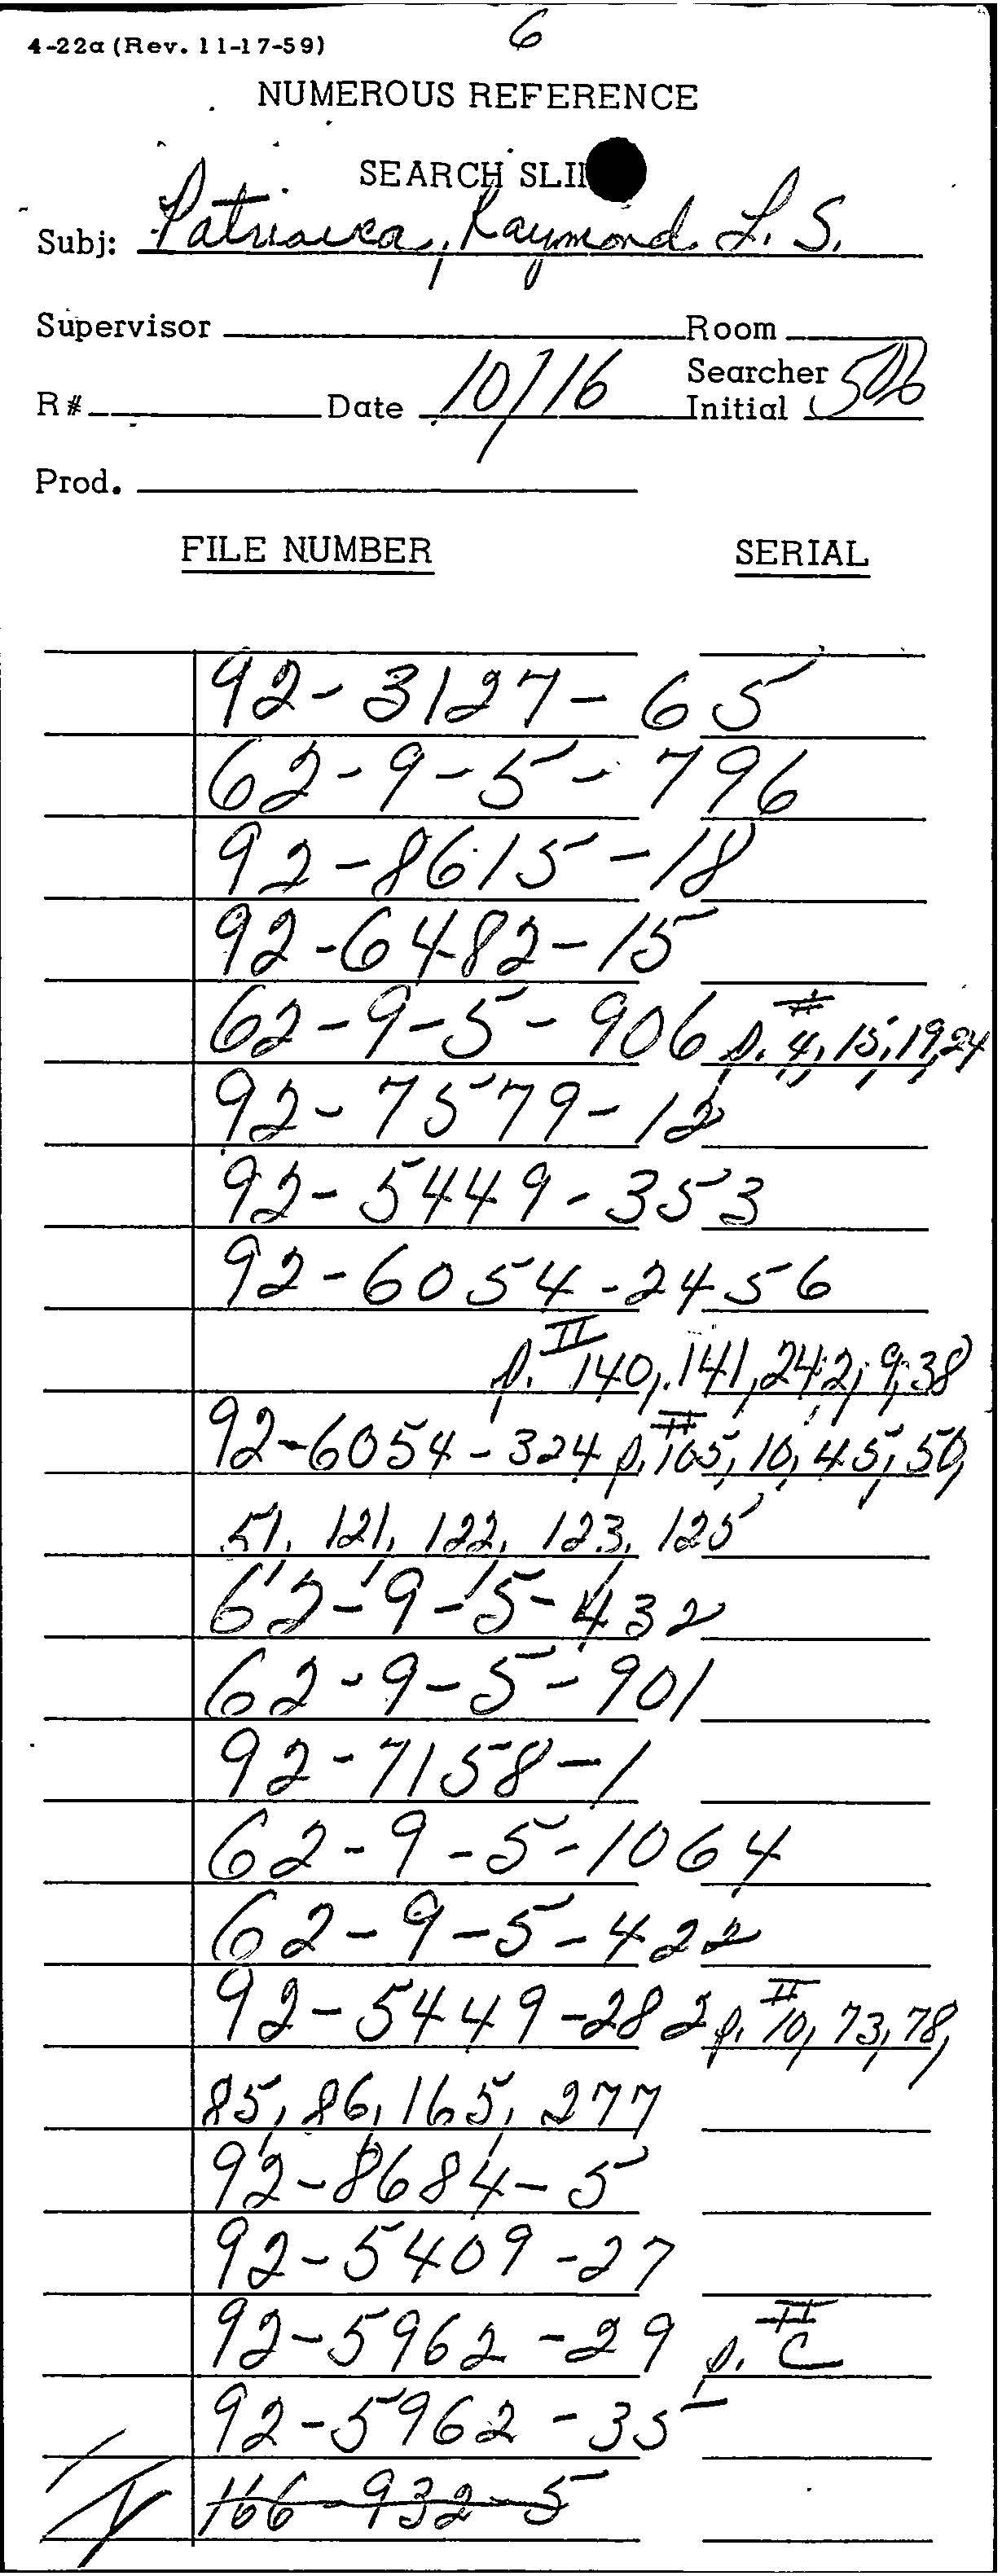 6
4-22a (Rev. 11-17-59)
NUMEROUS REFERENCE
SEARCH SLI
Subj: Patriarca, Raymond L. S.
Supervisor Room
R# Date 10/16 Searcher Initial 506
Prod.
FILE NUMBER SERIAL
92-3127-65
62-9-5-796
92-8615-18
92-6482-15
62-9-5-906 p. # 4, 15, 19, 24
92-7579-12
92-5449-353
92-6054-2456
p. II 140, 141, 242, 9, 38
92-6054-324 p. II 105, 10, 45, 50,
51, 121, 122, 123, 125
62-9-5-432
62-9-5-901
92-7158-1
62-9-5-1064
62-9-5-422
92-5449-282 p. II 10, 73, 78,
85, 86, 165, 277
92-8684-5
92-5409-27
92-5962-29 p. II C
92-5962-35
166-932-5